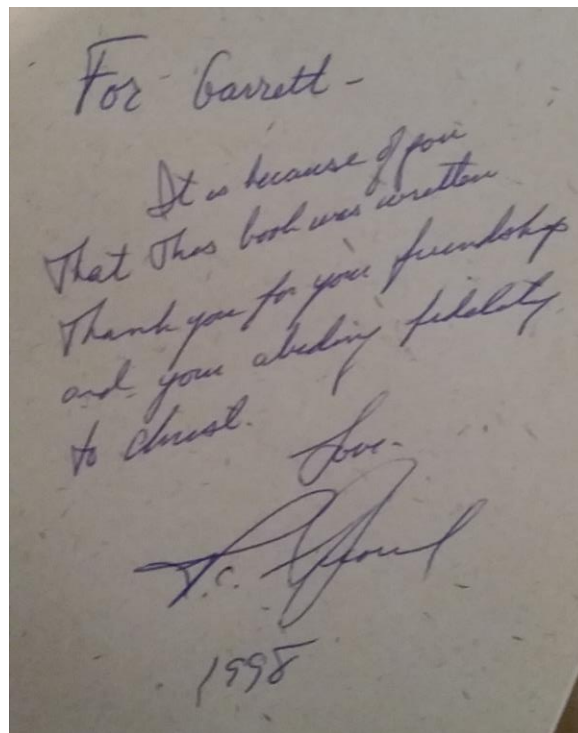 For Garrett -
It is because of you
That This book was written
Thank you for your friendship
and your abiding fidelity
to Christ.
Love -
R.C. Sproul
1998